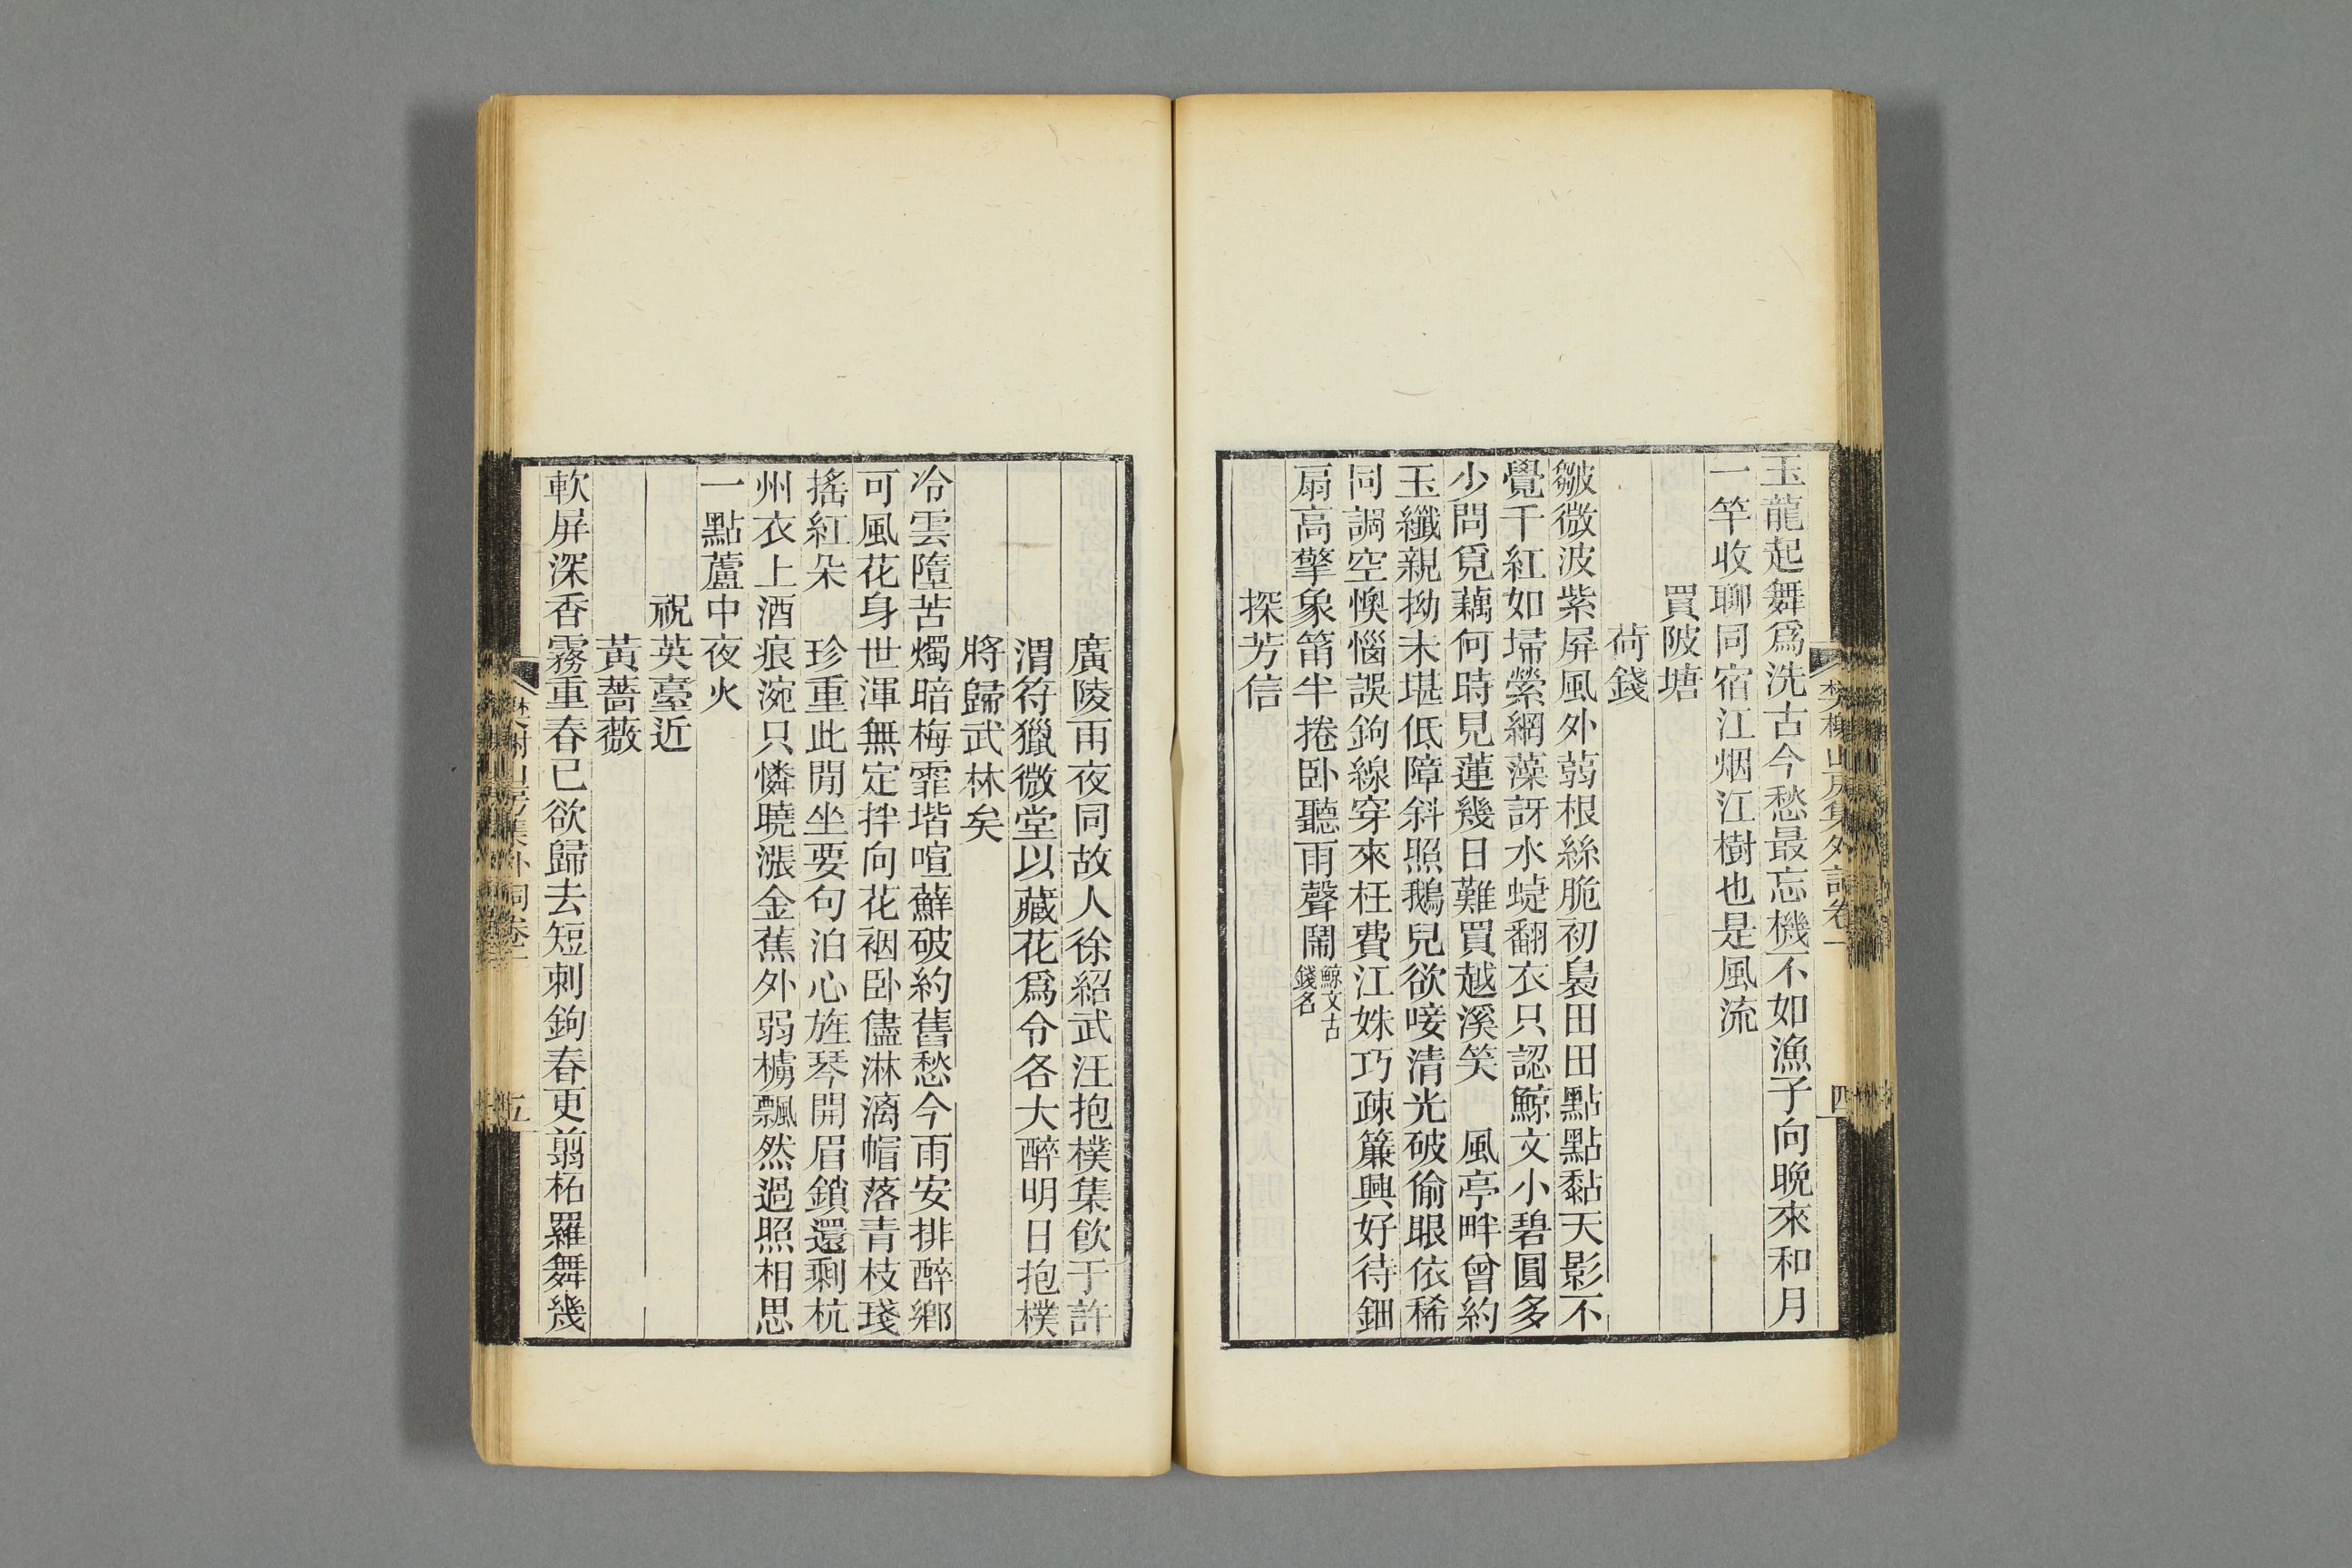 玉龍起舞爲洗古今愁最忘機不如漁子向晚來和月
一竿收聊同宿江烟江樹也是風流
買陂塘
荷錢
皺微波紫屏風外蒻根絲脆初裊田田點點黏天影不
覺千紅如埽縈網藻訝水蜨翻衣只認鯨文小碧圓多
少問覓藕何時見蓮幾日難買越溪笑　風亭畔曾約
玉纖親拗未堪低障斜照鵝兒欲唼清光破偷眼依稀
同調空懊惱誤鉤線穿來枉費江姝巧疎簾興好待鈿
扇高擎象筩半捲卧聽雨聲鬧鯨文古錢名
探芳信
四
廣陵雨夜同故人徐紹武汪抱樸集飲于許
渭符獵微堂以藏花爲令各大醉明日抱樸
將歸武林矣
冷雲墮苦燭暗梅霏堦喧蘚破約舊愁今雨安排醉鄉
可風花身世渾無定拌向花裀卧儘淋漓帽落青枝琖
搖紅朵　珍重此閒坐要句泊心旌琴開眉鎖還剩杭
州衣上酒痕涴只憐曉漲金蕉外弱櫓飄然過照相思
一點蘆中夜火
祝英臺近
黃薔薇
軟屏深香霧重春已欲歸去短刺鉤春更翦柘羅舞幾
五